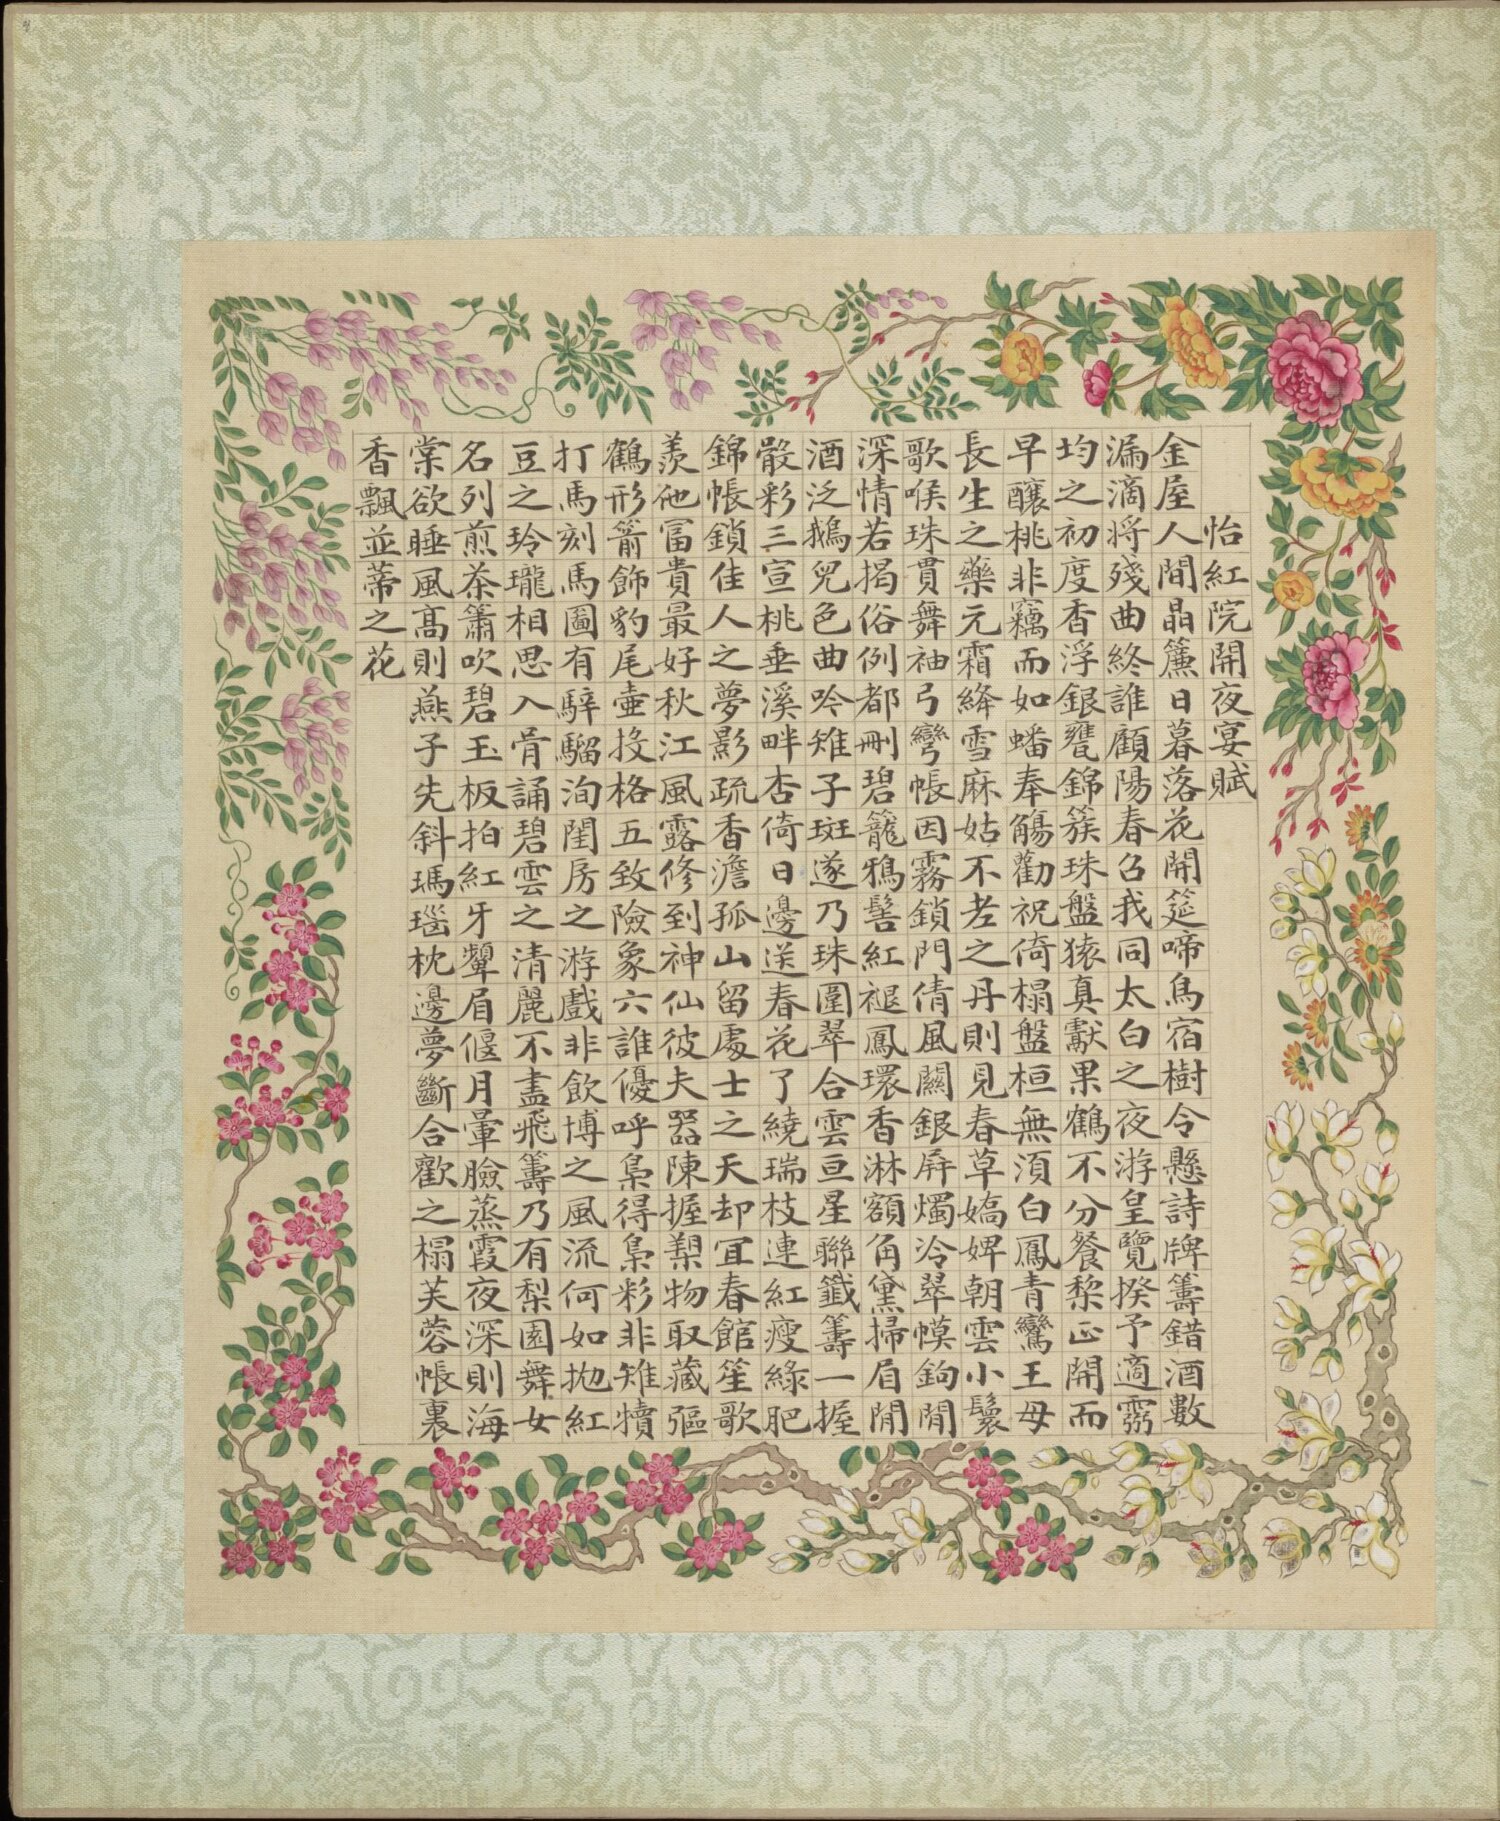 怡紅院開夜宴賦
金屋人間晶簾日暮落花開筵啼鳥宿樹令懸詩牌籌錯酒數
漏滴將殘曲終誰顧陽春召我同太白之夜游皇覽揆予適霛
均之初度香浮銀甕錦簇珠盤猿真獻果鶴不分餐黎正開而
早釀桃非竊而如蟠奉觴勸祝倚榻盤桓無須白鳳青鸞王母
長生之藥元霜絳雪麻姑不老之丹則見春草嬌婢朝雲小鬟
歌喉珠貫舞袖弓彎帳因霧鎖門倩風關銀屏燭冷翠幙鉤閒
深情若揭俗例都刪碧籠鴉髻紅褪鳳環香淋額角黛掃眉閒
酒泛鵝兒色曲吟雉子斑遂乃珠圍翠合雲亘星聯籤籌一握
骰彩三宣桃垂溪畔杏倚日邊送春花了繞瑞枝連紅瘦綠肥
錦帳鎖佳人之夢影疏香澹孤山留處士之天却宜春館笙歌
羨他富貴最好秋江風露修到神仙彼夫器陳握槊物取藏彄
鶴形箭飾豹尾壷投格五致險象六誰優呼梟得梟彩非雉犢
打馬刻馬圖有騂騮洵閨房之游戲非飲博之風流何如拋紅
豆之玲瓏相思入骨誦碧雲之清麗不盡飛籌乃有梨園舞女
名列煎茶簫吹碧玉板拍紅牙顰眉偃月暈臉蒸霞夜深則海
棠欲睡風髙則燕子先斜瑪瑙枕邊夢斷合歡之榻芙蓉帳裏
香飄並蒂之花